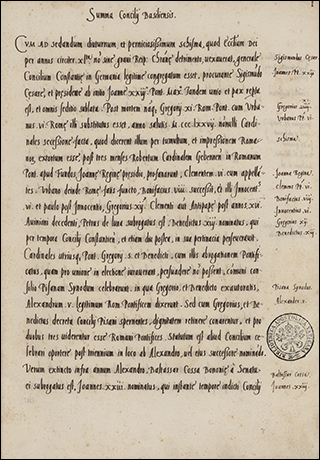 Summa Concilij Basiliensis.
CUM AD sedandum diuturnum, et perniciosissimum schisma, quod Ecclīam Dei
per annos circiter xlᵗᵃ nō sine gravi Reip: Chrīanę detrimento, vexaverat, generale
Concilium Constantię in Germania legitime congregatum esset, procurante Sigismūdo
Cesare, et presidente ab initio Joanne xxiij. Pont. Max. Tandem unio et pax repta
est, et omnis seditio sublata. Post mortem nāq; Gregorij xi. Rom. Pont. cum Urba-
nus vi. Romę illi substitutus esset anno salutis M.ccc.lxxviij. nōnulli Cardi-
nales secessione facta, quod dicerent illum per tumultum, et impressionem Roma-
nor, extortum esse, post tres menses Robertum Cardinalem Gebenēn in Romanum
Pont. apud Fundos, Joannę Reginę presidio, profanarunt, Clementem vi. eum appellā-
tes. Urbano deinde Romę satis functo, Bonifacius viiij. successit, et illi Innocent.
vi. et paulo post Innocentio, Gregorius xij. Clementi aūt Antipapę post annos xvi.
Avinioni decedenti, Petrus de luna subrogatus est Benedictus xiij. nominatus, qui
per tempora Concilij Constantien, et etiam diu postea, in sua pertinacia perseverant.
Cardinales utriusq, Pont. Gregorij .s. et Benedicti, cum illis abrogationem Pontifi-
catus, quam pro unione in electione iuraverant, persuadere nō possent, comuni con-
silio Pisanam Synodum celebrarunt: in qua Gregorio, et Benedicto exauctoratis,
Alexandrum v. legitimum Rom Pontificem dixerunt. Sed cum Gregorius, et Be-
nedictus decreta Concilij Pisani spernentes, dignitatem retinere conarentur, et pro
duobus tres viderentur esse Romani Pontifices. Statutum est aliud Concilium ce-
lebrari oportere post triennium in loco ab Alexandro, vel eius successore nominādo.
Verum extincto infra annum Alexandro, Baltassar Cossa Bononię à Senatu
ei subrogatus est, Joannes xxiij. nominatus, qui instante tempore indicti Concilij
Sigismundus Cesar
Joannes Pp. xxiij.
Gregorius
Urbanus vi.
schisma.
Joanna Regina.
clemens Pp. vi.
Bonifacius viiij.
Innocentius vi.
Gregorius xij
Benedictus xiij.
Pisana Synodus.
Alexander v.
Baltassar Cossa
Joannes xxiij.